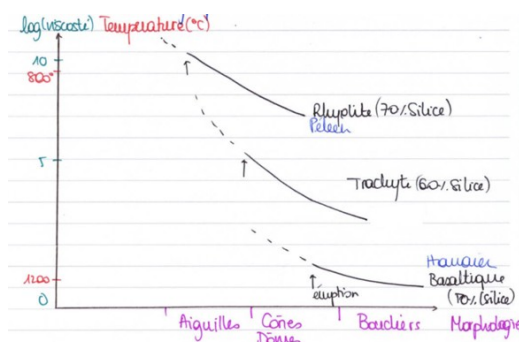 log(viscosté) Température (°C)
10
800°
Rhyolite (70% Silice)
Péléen
5
Trachyte (60% Silice)
Hawaïen
1200
Basaltique
0
éruption
(70% Silice)
Aiguilles
Cônes
Dômes
Boucliers
Morphologie